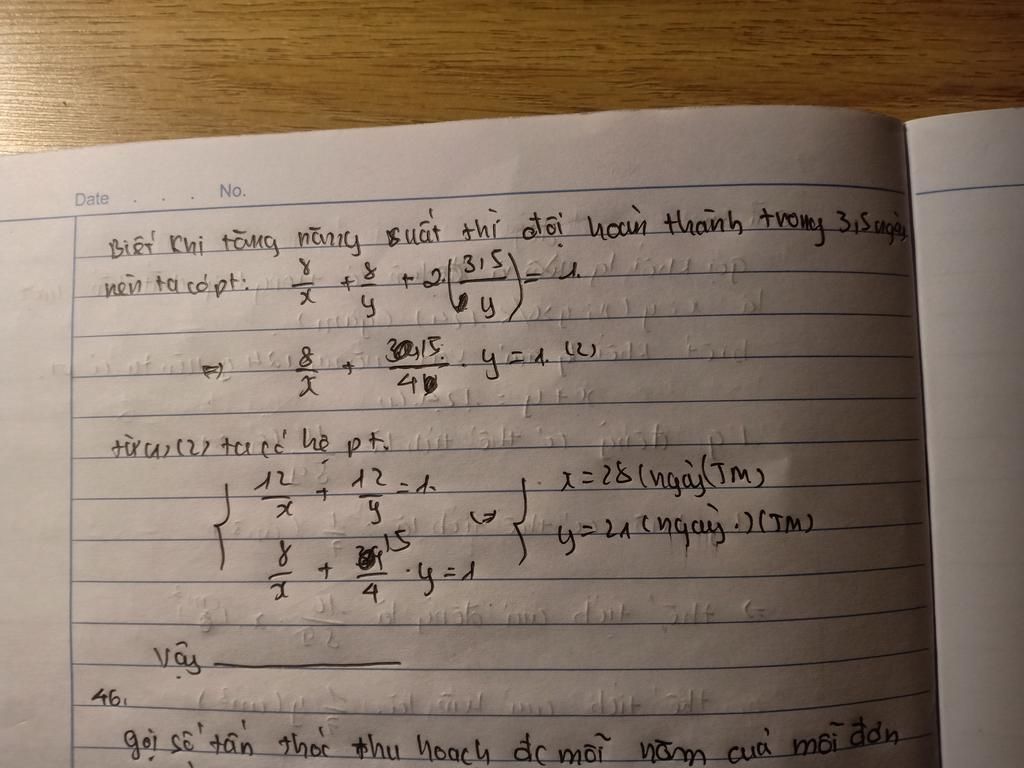 Date . . . . No.
Biết khi tăng năng suất thì đội hoàn thành trong 3,5 ngày
nên ta có pt: 8/x + 8/y + 2.(3,5/y) = 1.
⇒ 8/x + 15/4 . y = 1. (2)
từ (1), (2) ta có hệ pt.
{ 12/x + 12/y = 1. ⇔ { x = 28 (ngày (TM)
8/x + 15/4 . y = 1 y = 21 (ngày.) (TM)
Vậy
46.
gọi số tấn thóc thu hoạch đc mỗi năm cuả mỗi đơn